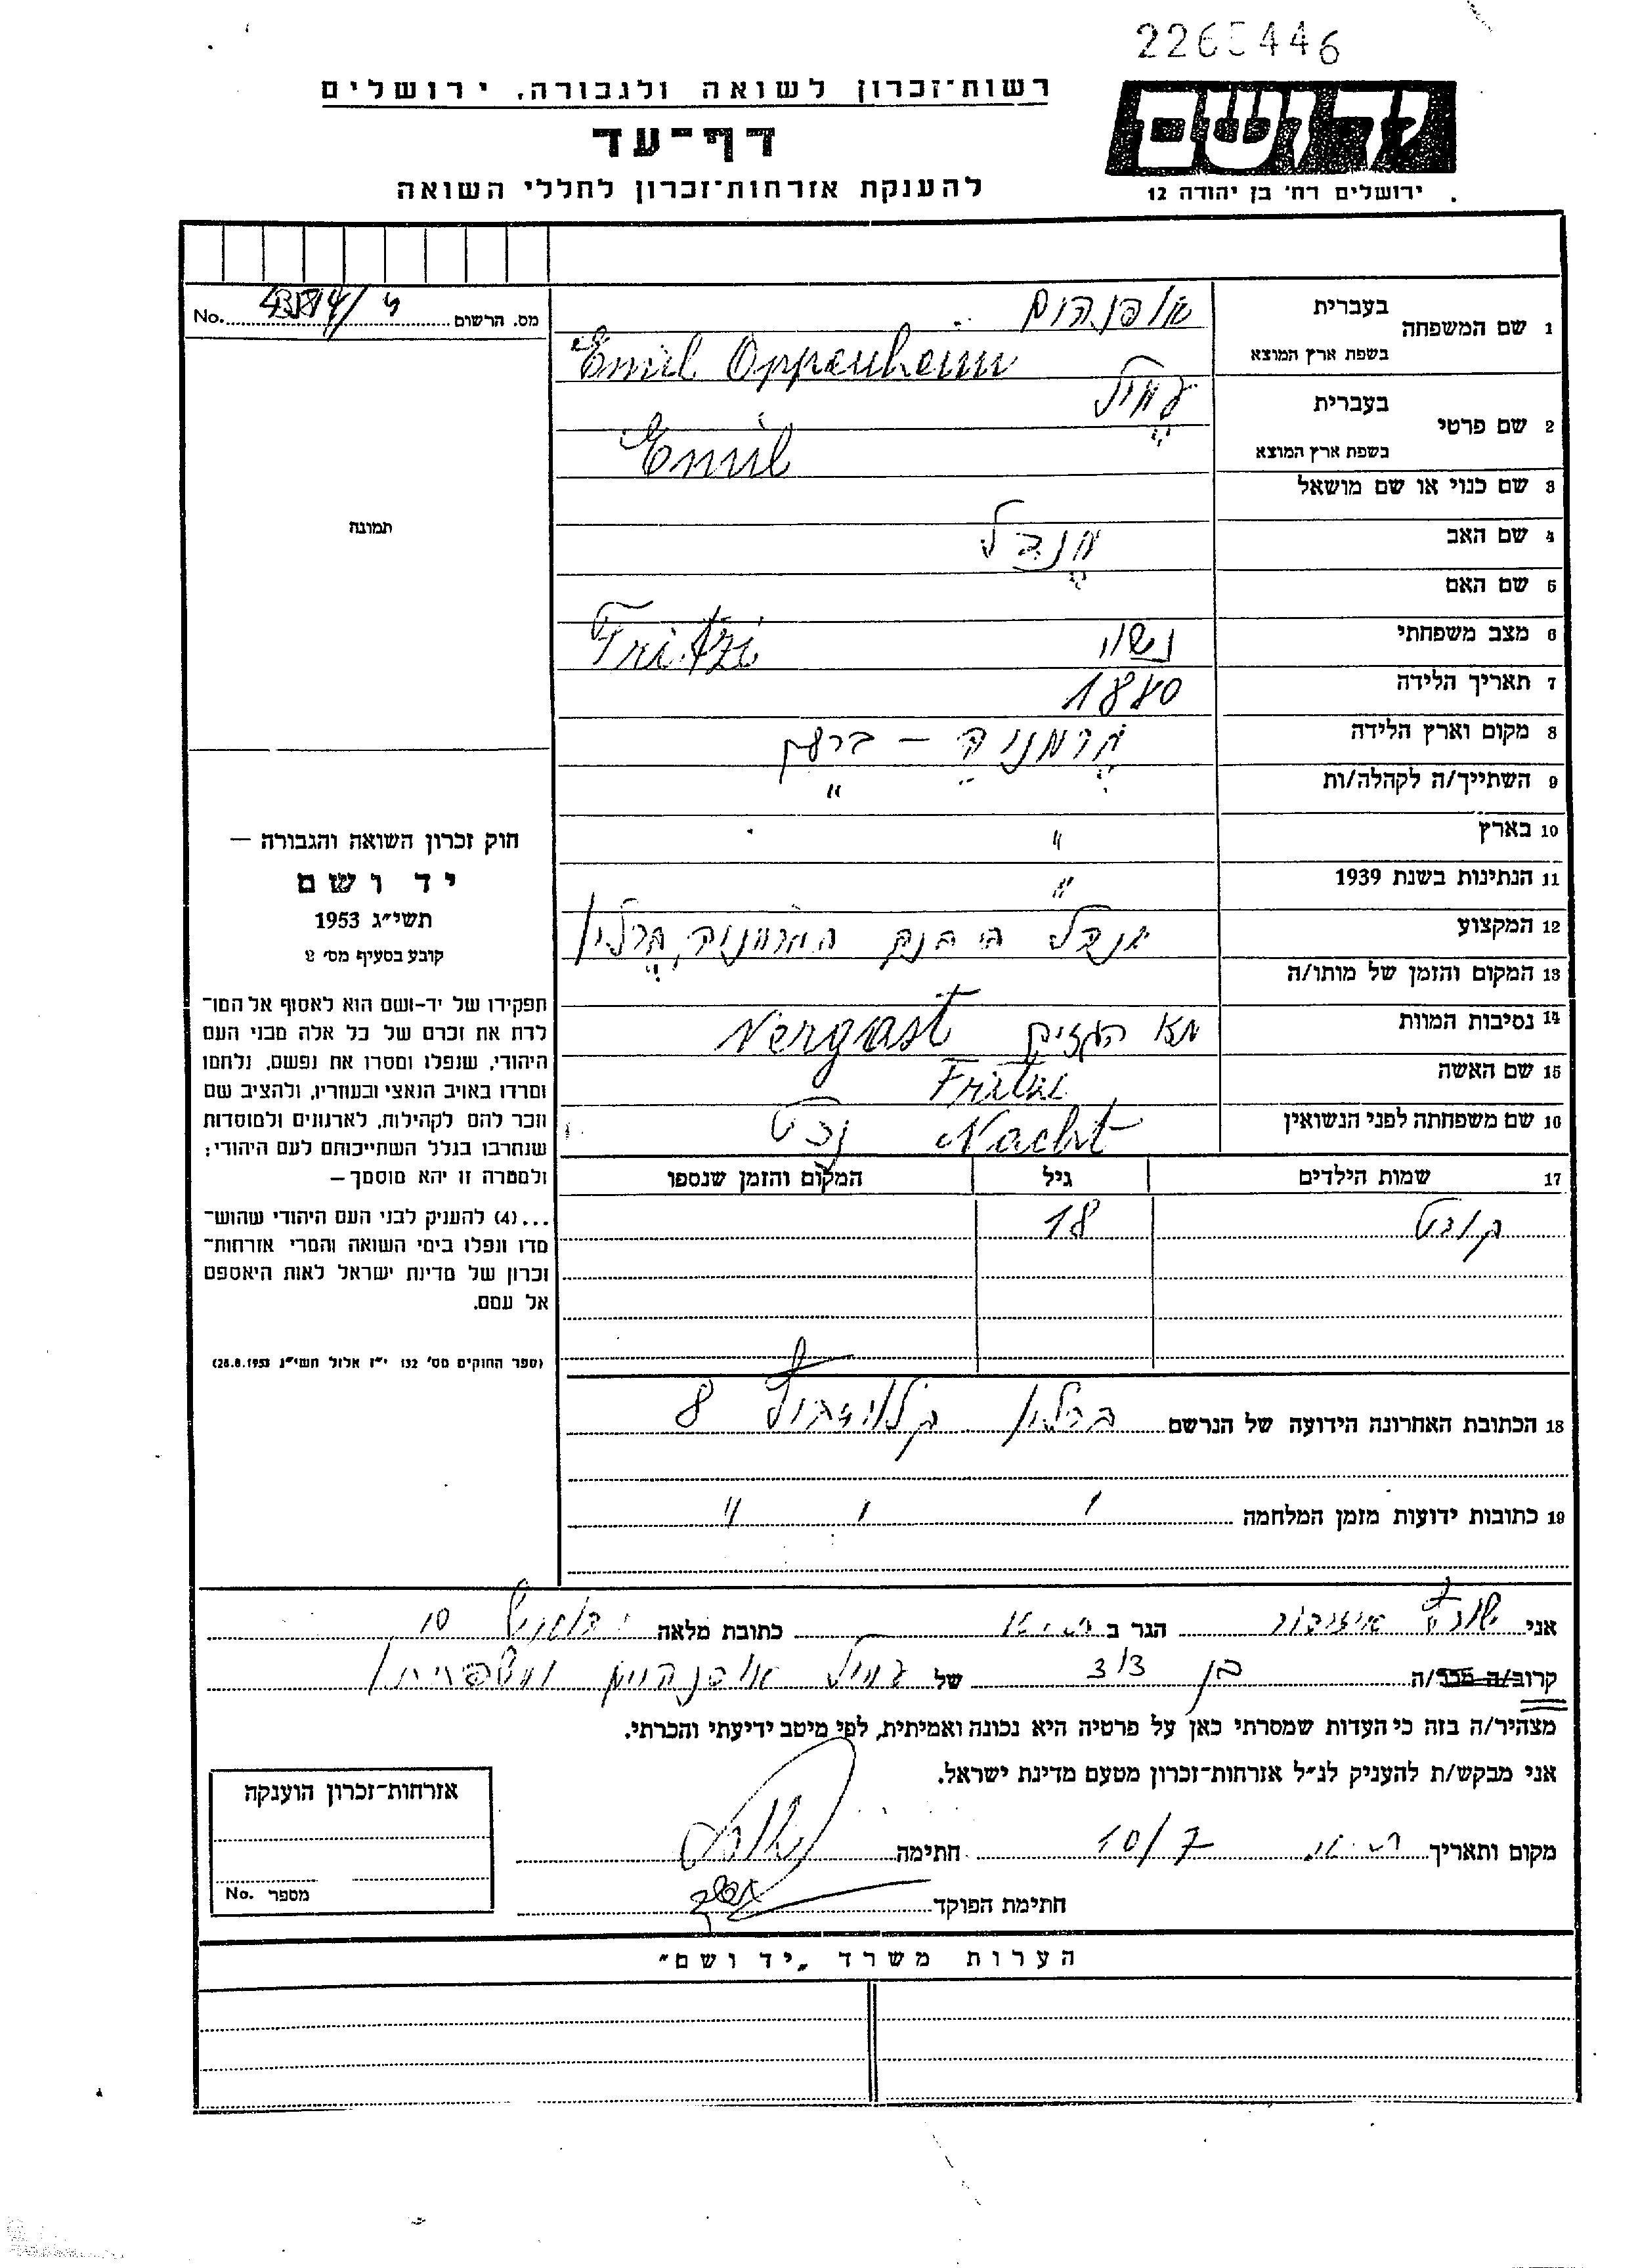 2265446
רשות־זכרון לשואה ולגבורה, ירושלים
ידושם
דף־עד
ירושלים רח׳ בן יהודה 12
להענקת אזרחות־זכרון לחללי השואה
No. מס. הרשום
1 שם המשפחה בעברית אופנהים
בשפת ארץ המוצא Emil Oppenheim
2 שם פרטי בעברית עמיל
בשפת ארץ המוצא Emil
3 שם כנוי או שם מושאל
תמונה
4 שם האב מנדל
5 שם האם
6 מצב משפחתי נשוי Fritzi
7 תאריך הלידה 1880
8 מקום וארץ הלידה גרמניה –
9 השתייך/ה לקהלה/ות "
10 בארץ "
11 הנתינות בשנת 1939 "
12 המקצוע
13 המקום והזמן של מותו/ה
14 נסיבות המוות תא הגזים Vergast
15 שם האשה Fritzi
16 שם משפחתה לפני הנשואין Nacht נכט
17 שמות הילדים גיל המקום והזמן שנספו
קורט 18
18 הכתובת האחרונה הידועה של הנרשם ברלין 8
19 כתובות ידועות מזמן המלחמה " " "
חוק זכרון השואה והגבורה —
יד ושם
תשי״ג 1953
קובע בסעיף מס׳ 2
תפקידו של יד-ושם הוא לאסוף אל המו־
לדת את זכרם של כל אלה מבני העם
היהודי, שנפלו ומסרו את נפשם, נלחמו
ומרדו באויב הנאצי ובעוזריו, ולהציב שם
וזכר להם לקהילות, לארגונים ולמוסדות
שנחרבו בגלל השתייכותם לעם היהודי;
ולמטרה זו יהא מוסמך—
...(4) להעניק לבני העם היהודי שהוש־
מדו ונפלו בימי השואה והמרי אזרחות־
זכרון של מדינת ישראל לאות היאספם
אל עמם.
(ספר החוקים מס׳ 132 י״ז אלול תשי״ג 28.8.1953)
אני הגר ב כתובת מלאה 10
קרוב/ה מכר/ה בן דוד של עמיל אופנהים ומשפחתו
מצהיר/ה בזה כי העדות שמסרתי כאן על פרטיה היא נכונה ואמיתית, לפי מיטב ידיעתי והכרתי.
אני מבקש/ת להעניק לנ״ל אזרחות־זכרון מטעם מדינת ישראל.
מקום ותאריך 10/7 חתימה
חתימת הפוקד
אזרחות־זכרון הוענקה
No. מספר
הערות משרד „יד ושם״